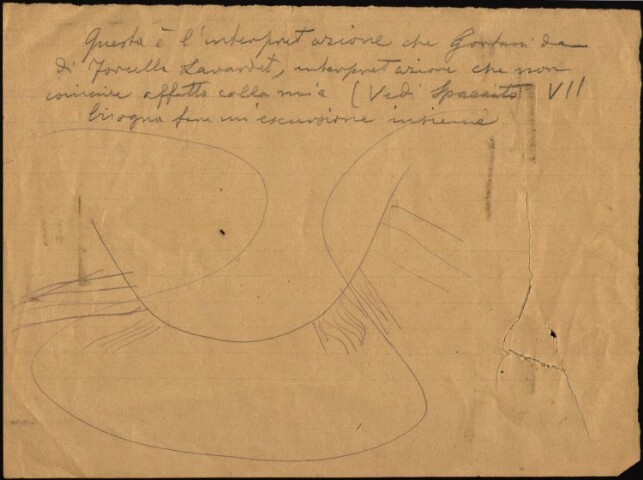 Questa è l'interpretazione che Gortani dà
di Forcella Lavardet, interpretazione che non
coincide affatto colla mia (Vedi Spaccato VII
bisogna fare un'escursione insieme